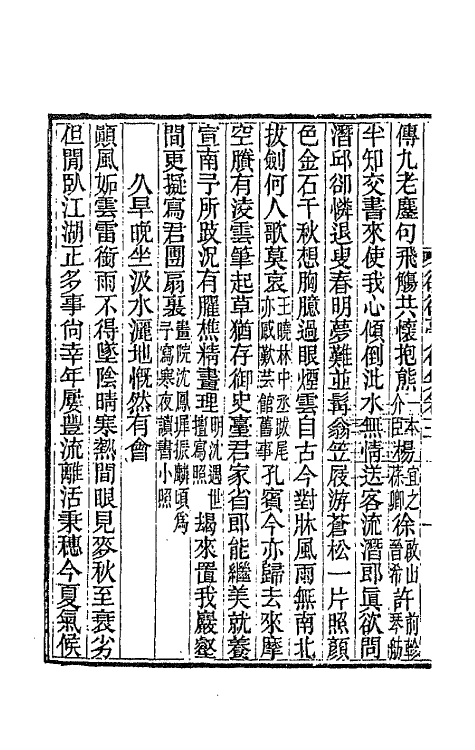 傳九老塵句飛觴共懷抱熊一本介臣楊宜之葆卿徐啟山晉希許前軫琴舫
半知交書來使我心傾倒沘水無情送客流潛郎眞欲問
潛邱卻憐退叟春明夢難並髯翁笠屐游蒼松一片照顏
色金石千秋想胸臆過眼煙雲自古今對牀風雨無南北
拔劍何人歌莫哀王曉林中丞跋尾亦感歎芸館舊事孔賓今亦歸去來摩
空賸有淩雲筆起草猶存御史臺君家省郎能繼美就養
宣南予所跂況有臞樵精畫理明沈遇世擅寫照朅來置我巖壑
間更擬寫君團扇裏畫院沈鳳墀振麟頃爲予寫寒夜讀書小照
久旱晚坐汲水灑地慨然有會
顚風妬雲雷銜雨不得墜陰晴寒熱間眼見麥秋至衰劣
但閒臥江湖正多事尙幸年屢豐流離活秉穗今夏氣候